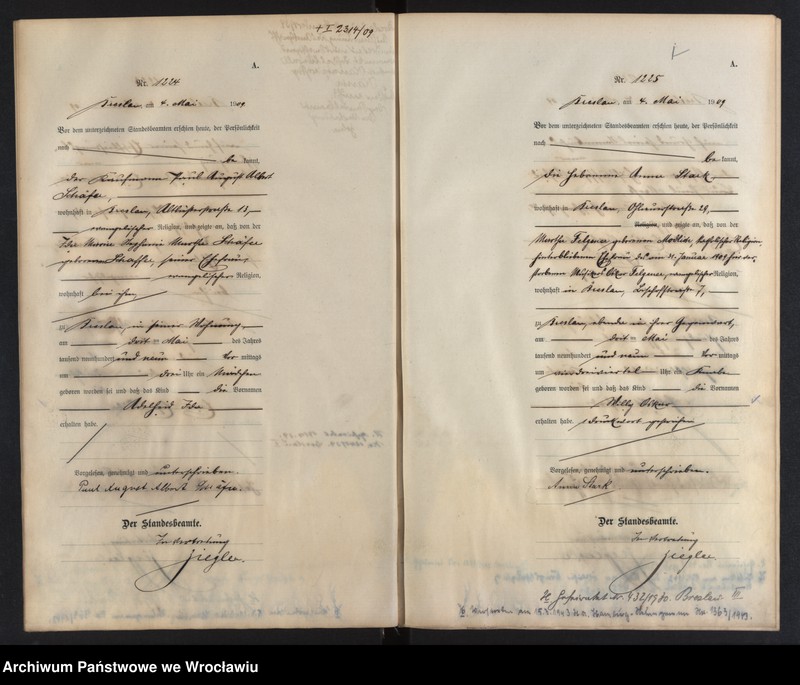 + I 2314/09
A.
Nr. 1224
Breslau, am 4. Mai 1909
Vor dem unterzeichneten Standesbeamten erschien heute, der Persönlichkeit
nach be kannt,
der Kaufmann Paul August Albert
Schäfer,
wohnhaft in Breslau, 13,
evangelischer Religion, und zeigte an, daß von der
Ida Marie Martha Schäfer
geborenen seiner Ehefrau,
evangelischer Religion,
wohnhaft bei ihm,
zu Breslau, in seiner Wohnung,
am drit ten Mai des Jahres
tausend neunhundert und neun Vor mittags
um drei Uhr ein Mädchen
geboren worden sei und daß das Kind die Vornamen
Adelheid Ida
erhalten habe.
Vorgelesen, genehmigt und unterschrieben.
Paul August Albert Schäfer.
Der Standesbeamte.
In Vertretung
Ziegler.
A.
Nr. 1225
Breslau, am 4. Mai 1909
Vor dem unterzeichneten Standesbeamten erschien heute, der Persönlichkeit
nach be kannt,
die Hebamme Anna Stark,
wohnhaft in Breslau, Ohlauerstraße 29,
Religion, und zeigte an, daß von der
Martha Felgener geborenen katholischer Religion,
hinterbliebenen Ehefrau des am 31. Januar 1909 hier ver-
storbenen Musikers Oskar Felgener, evangelischer Religion,
wohnhaft in Breslau, Bischofstraße 7,
zu Breslau, ebenda in ihrer Gegenwart,
am drit ten Mai des Jahres
tausend neunhundert und neun Vor mittags
um eindreiviertel Uhr ein Knabe
geboren worden sei und daß das Kind die Vornamen
Willy Oskar
erhalten habe. 1 Druckwort gestrichen
Vorgelesen, genehmigt und unterschrieben.
Anna Stark
Der Standesbeamte.
In Vertretung
Ziegler
Breslau
1943 Hamburg 363/1943.
Archiwum Państwowe we Wrocławiu